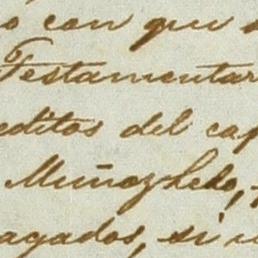 ó con que s
Testamentar
editos del cap
Muñoz
agados, si u